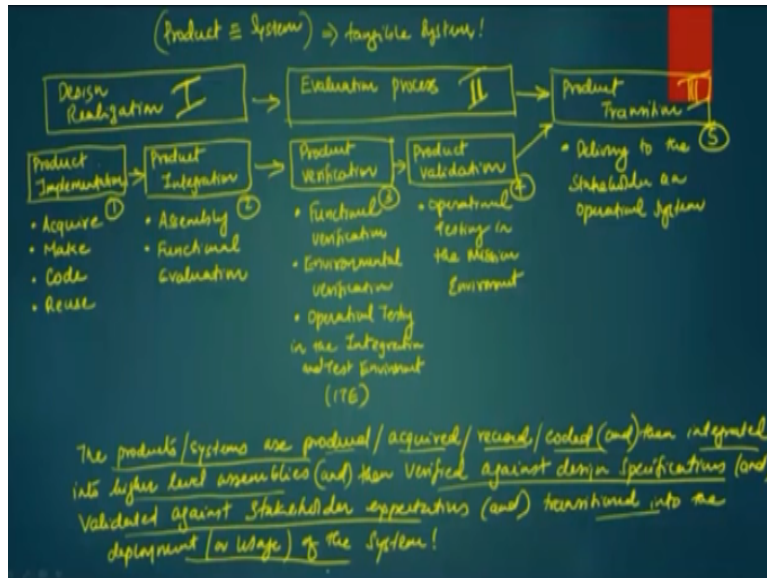 (Product ≡ System) ⇒ tangible System!
Design
Realization I
Evaluation process II
Product
Transition III
Product
Implementation ①
• Acquire
• Make
• Code
• Reuse
Product
Integration ②
• Assembly
• Functional
Evaluation
Product
Verification ③
• Functional
verification
• Environmental
verification
• Operational Testing
in the Integration
and Test Environment
(ITE)
Product
Validation ④
• Operational
Testing in
the Mission
Environment
⑤
• Delivery to the
Stakeholder an
Operational System
The products/systems are produced/acquired/reused/coded (and) then integrated
into higher level assemblies (and) then Verified against design specifications (and)
Validated against Stakeholder expectations (and) transitioned into the
deployment (or usage) of the System!